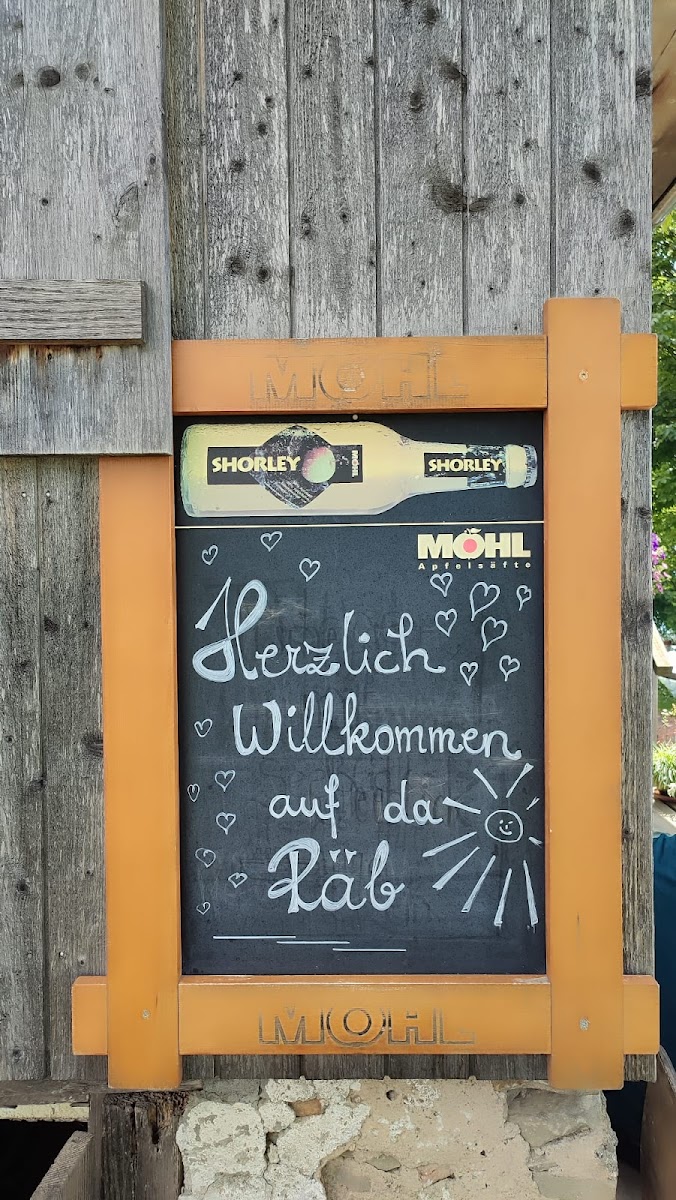 MÖHL
SHORLEY
SHORLEY
MÖHL
Apfelsäfte
Herzlich
Willkommen
auf da
Räb
MÖHL